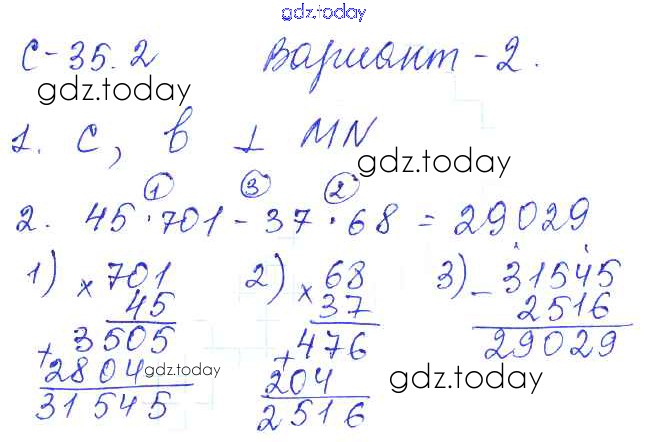 gdz.today
С-35.2 Вариант-2.
gdz.today
1. c, b ⊥ MN
gdz.today
① ③ ②
2. 45·701-37·68=29029
1) × 701 2) × 68 3) - 31545
45 37 2516
+ 3505 + 476 29029
2804 gdz.today 204 gdz.today
31545 2516